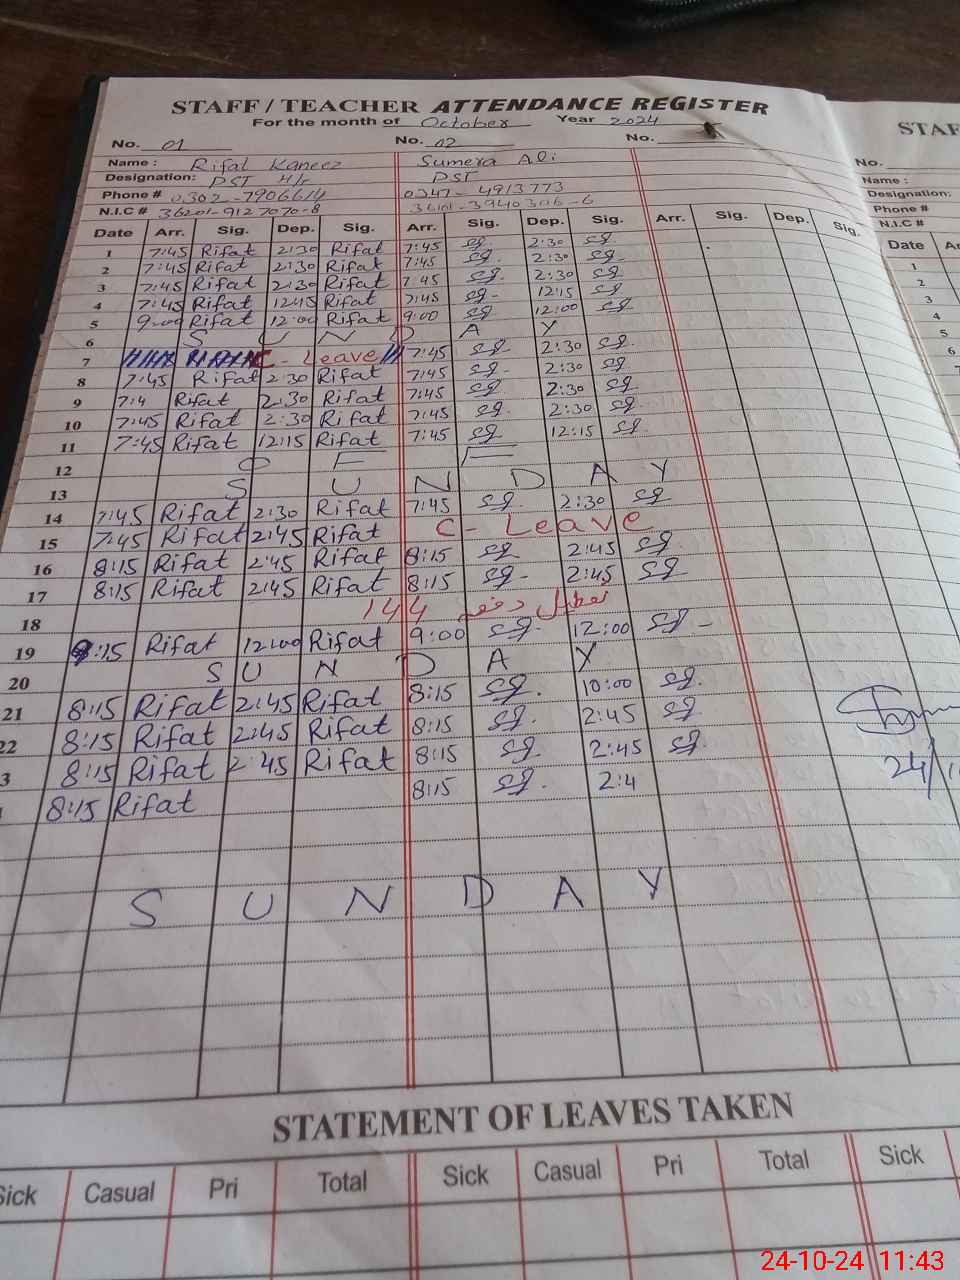 STAFF / TEACHER ATTENDANCE REGISTER
STAFF
For the month of October Year 2024
No. 01 No. 02 No.
No.
Name : Rifat Kaneez Sumera Ali
Name :
Designation: PST H/r PST
Designation:
Phone # 0302-7906614 0347-4913773
Phone #
N.I.C # 36201-9127070-8 36101-3940306-6
N.I.C #
Date Arr. Sig. Dep. Sig. Arr. Sig. Dep. Sig. Arr. Sig. Dep. Sig.
Date Ar
1 7:45 Rifat 2:30 Rifat 7:45 sg 2:30 sg
1
2 7:45 Rifat 2:30 Rifat 7:45 sg. 2:30 sg
2
3 7:45 Rifat 2:30 Rifat 7:45 sg. 2:30 sg
3
4 7:45 Rifat 12:45 Rifat 7:45 sg- 12:15 sg
4
5 9:00 Rifat 12:00 Rifat 9:00 sg 12:00 sg
5
6 S U N D A Y
6
7 C - Leave 7:45 sg 2:30 sg.
7
8 7:45 Rifat 2:30 Rifat 7:45 sg- 2:30 sg
9 7:4 Rifat 2:30 Rifat 7:45 sg. 2:30 sg
10 7:45 Rifat 2:30 Rifat 7:45 sg. 2:30 sg.
11 7:45 Rifat 12:15 Rifat 7:45 sg 12:15 sg.
12 O F F
13 S U N D A Y
14 7:45 Rifat 2:30 Rifat 7:45 sg. 2:30 sg
15 7:45 Rifat 2:45 Rifat C- Leave
16 8:15 Rifat 2:45 Rifat 8:15 sg 2:45 sg.
17 8:15 Rifat 2:45 Rifat 8:15 sg- 2:45 sg
18 تعطیل دفعہ 144
19 8:15 Rifat 12:00 Rifat 9:00 sg. 12:00 sg-
20 S U N D A Y
21 8:15 Rifat 2:45 Rifat 8:15 sg. 10:00 sg.
22 8:15 Rifat 2:45 Rifat 8:15 sg. 2:45 sg
3 8:15 Rifat 2:45 Rifat 8:15 sg 2:45 sg.
8:15 Rifat 8:15 sg. 2:4
24/1
S U N D A Y
STATEMENT OF LEAVES TAKEN
Sick Casual Pri Total Sick Casual Pri Total Sick
24-10-24 11:43